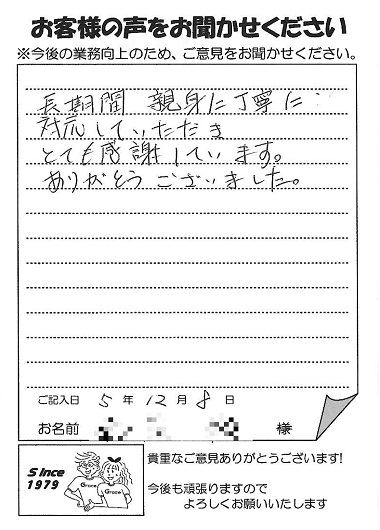 お客様の声をお聞かせください
※今後の業務向上のため、ご意見をお聞かせください。
長期間 親身に丁寧に
対応していただき
とても感謝しています。
ありがとうございました。
ご記入日 5 年 12 月 8 日
お名前 様
Since
1979
Grace
Grace
貴重なご意見ありがとうございます!
今後も頑張りますので
よろしくお願いいたします